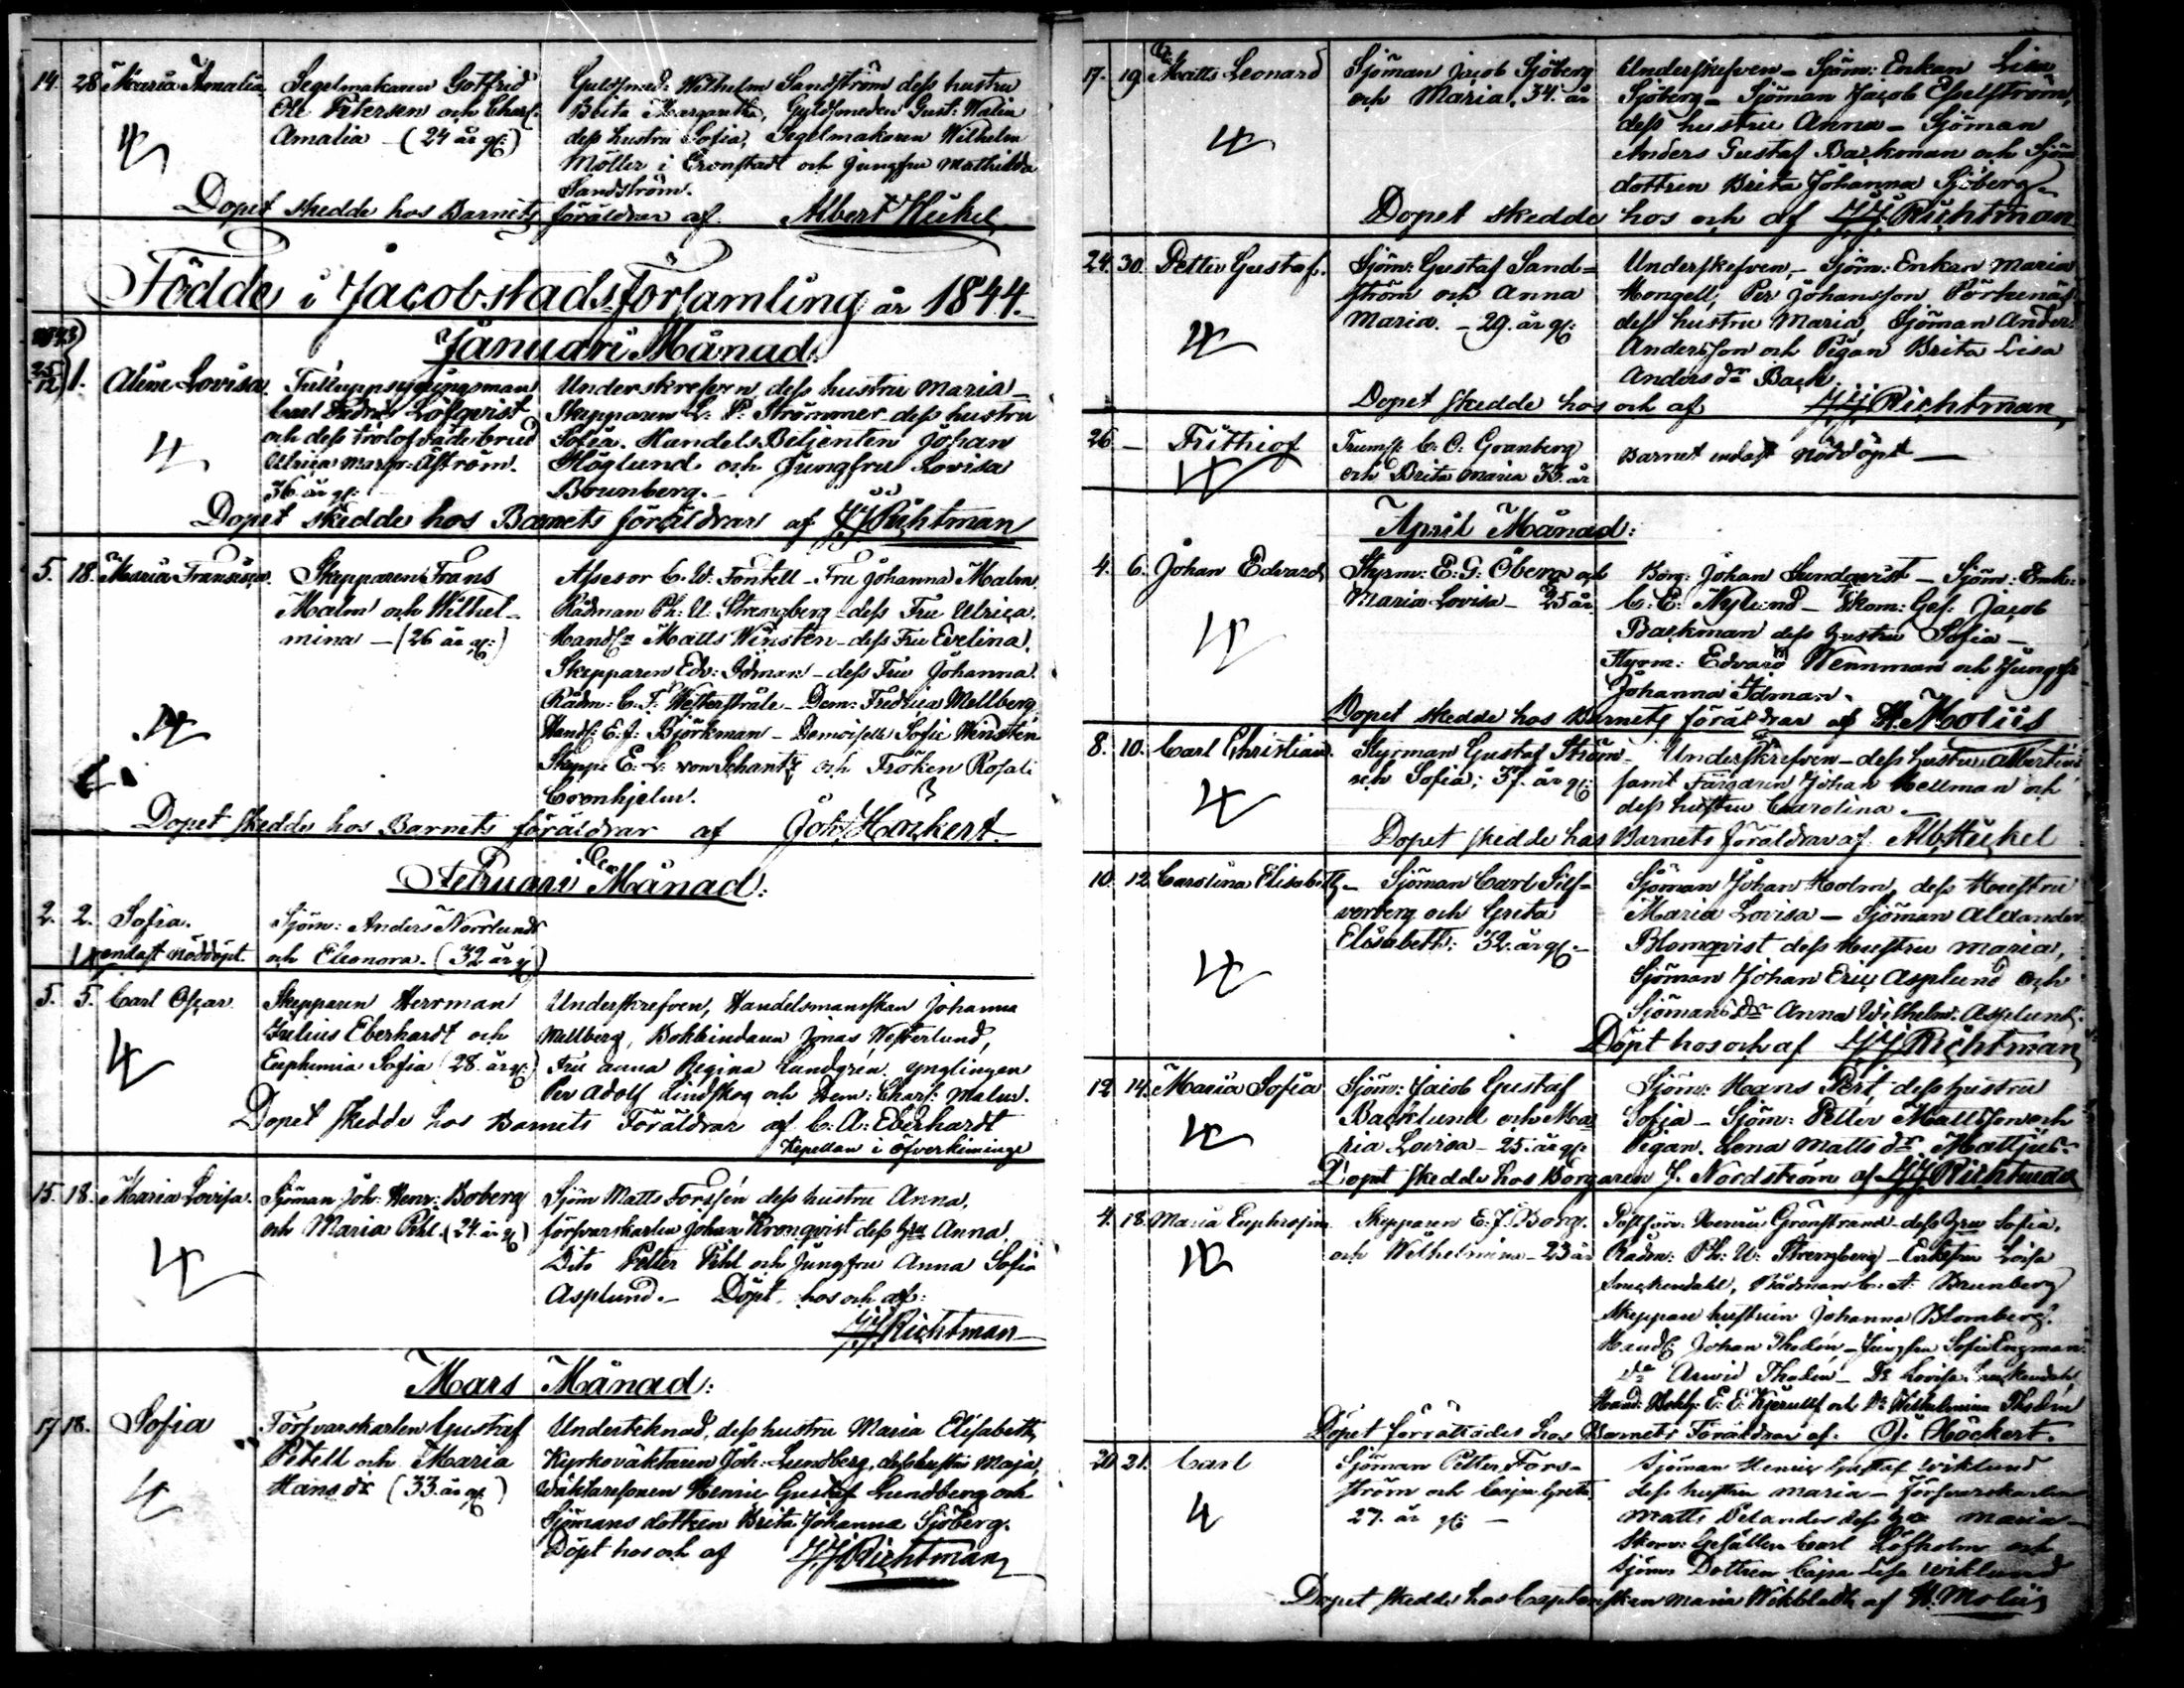 14. 28 Maria Amalia. Segelmakaren Gotfrid Guldsmed: Wilhelm Sandström dess hustru
Ole Petersen och Charl: Brita Margaretha, Guldsmeden Gust: Walin
Amalia – (24 år gl:) dess hustru Sofia, Segelmakaren Wilhelm
Möller i Cronstadt och jungfru Mathilda
Sandström.
Dopet skedde hos Barnets föräldrar af Albert Heikel
Födde i Jacobstads Församling år 1844.
Januari Månad.
1843
25/12 1. Aline Lovisa. Tulluppsyningsman Underskrefven dess hustru Maria –
Carl Fredric Löfqvist Skepparen L: P: Strömmer dess hustru
och dess trolofvade brud Sofia. Handels Betjenten Johan
Ulrica Margr: Åström. Höglund och Jungfru Lovisa
36 år gl: Brunberg. –
Dopet skedde hos Barnets föräldrar af J.J. Richtman
5. 18. Maria Fransisca. Skepparen Frans Assesor C. W: Fontell – Fru Johanna Malm
Malm och Wilhel- Rådman Ph: U. Strengberg – dess Fru Ulrica.
mina – (26 år gl:) Handl: Matts Winsten – dess Fru Evelina.
Skepparen Edv: Idman – dess Fru Johanna.
Rådm: C. F. Westerstråle – Dem: Fredrica Mellberg
Handl: E. J. Björkman – Demoiselle Sofie Winsten
Skepp: E. L: von Schantz och Fröken Rosali
Cronhjelm.
Dopet skedde hos Barnets föräldrar af Joh. Höckert.
Februari Månad:
2. 2. Sofia. Sjöm: Anders Norrlund
endast nöddöpt. och Eleonora. (32 år gl)
5. 5. Carl Oscar Skepparen Herrman Underskrefven, Handelsmanskan Johanna
Julius Eberhardt och Mellberg, Bokbindaren Jonas Westerlund,
Euphemia Sofia (28 år gl:) Fru Anna Regina Lundgrén. ynglingen
Per Adolf Lindskog och Dem: Charl: Malm.
Dopet skedde hos Barnets Föräldrar af C. A: Eberhardt
Kapellan i Öfverkiminge
15. 18. Maria Lovisa. Sjöman Joh: Henr: Boberg Sjöm Matts Forssén dess hustru Anna,
och Maria Pihl. (24 år gl) försvarskarlen Johan Kronqvist dess hru Anna,
Dito Petter Pihl och Jungfru Anna Sofia
Asplund. – Döpt hos och af:
J.J. Richtman
Mars Månad:
17 18. Sofia Försvarskarlen Gustaf Underteknad, dess hustru Maria Elisabeth,
Petell och Maria Kyrkoväktaren Joh: Lundberg, dess hustru Maja,
Hansdr (33 år gl) Wäktaresonen Henric Gustaf Lundberg och
Sjömans dottren Brita Johanna Sjöberg.
Döpt hos och af J.J. Richtman
17. 19. Matts Leonard Sjöman Jacob Sjöberg Underskrefven – Sjöm: Enkan Lisa
och Maria. 34. år Sjöberg – Sjöman Jacob Esselström,
dess hustru Anna – Sjöman
Anders Gustaf Backman och Sjöm:
dottren Brita Johanna Sjöberg –
Dopet skedde hos och af J.J. Richtman
24. 30. Petter Gustaf. Sjöm: Gustaf Sand= Underskrefven, – Sjöm: Enkan Maria
ström och Anna Mongell, Per Johansson
Maria. – 29. år gl: dess hustru Maria, Sjöman Anders
Andersson och Pigan Brita Lisa
Andersdr Back.
Dopet skedde hos och af J.J. Richtman
26. – Frithiof Trumsl: C. O. Granberg Barnet endast nöddöpt –
och Brita Maria 33. år
April Månad:
4. 6. Johan Edvard Styrm: E: G: Öberg och Borg: Johan Sundqvist – Sjöm: Enk:
Maria Lovisa – 25 år C. E: Nylund – Skom: Ges: Jacob
Backman dess hustru Sofia –
Styrm: Edvard Wennman och Jungfr
Johanna Idman.
Dopet skedde hos Barnets föräldrar af H. Moliis
8. 10. Carl Christian. Styrman Gustaf Ström Underskrefven – dess hustru Albertina
och Sofia; 37. år gl: samt Färgaren Johan Kellman och
dess hustru Carolina.
Dopet skedde hos Barnets föräldrar af Alb. Heikel
10. 12 Carolina Elisabeth – Sjöman Carl Silf- Sjöman Johan Holm, dess Hustru
verberg och Greta Maria Lovisa – Sjöman Alexander
Elisabeth: 32. år gl: – Blomqvist dess hustru Maria,
Sjöman Johan Eric Asplund och
Sjömans Dr Anna Wilhelm: Asplund.
Döpt hos och af J.J. Richtman
12 14. Maria Sofia Sjöm: Jacob Gustaf Sjöm: Hans Pert, dess hustru
Backlund och Ma- Sofia – Sjöm: Petter Mattsson och
ria Lovisa – 25. år gl: Pigan. Lena Mattsdr Mattjus. –
Dopet skedde hos Borgaren J. Nordström af J.J. Richtman
4. 18. Maria Euphrosyne Skepparen E. J: Borg. Postförv: Henric Grönstrand – dess hru Sofia,
och Wilhelmina – 23 år Rådm: Ph: U: Strengberg – Enkefru Lovisa
Smekendahl, Rådman C: A: Brunberg
Skeppare hustrun Johanna Blomberg.
Handl: Johan Thodén – Jungfru Sofia Engman.
Do Arvid Thodén – Do Lovisa Smekendahl
Hand: Bokh: E: E: Kjerulff och Do Wilhelmina Thodén
Dopet förrättades hos Barnets Föräldrar af J. Höckert.
20 21. Carl Sjöman Petter Fors- Sjöman Henric Gustaf Wiklund
ström och Cajsa Greta dess hustru Maria – Försvarskarlen
27. år gl: – Matts Delander dess hru Maria –
Skom: Gesällen Carl Löfholm och
Sjöm: Dottren Cajsa Lisa Wiklund
Dopet skedde hos Captenskan Maria Wikblath af H. Moliis